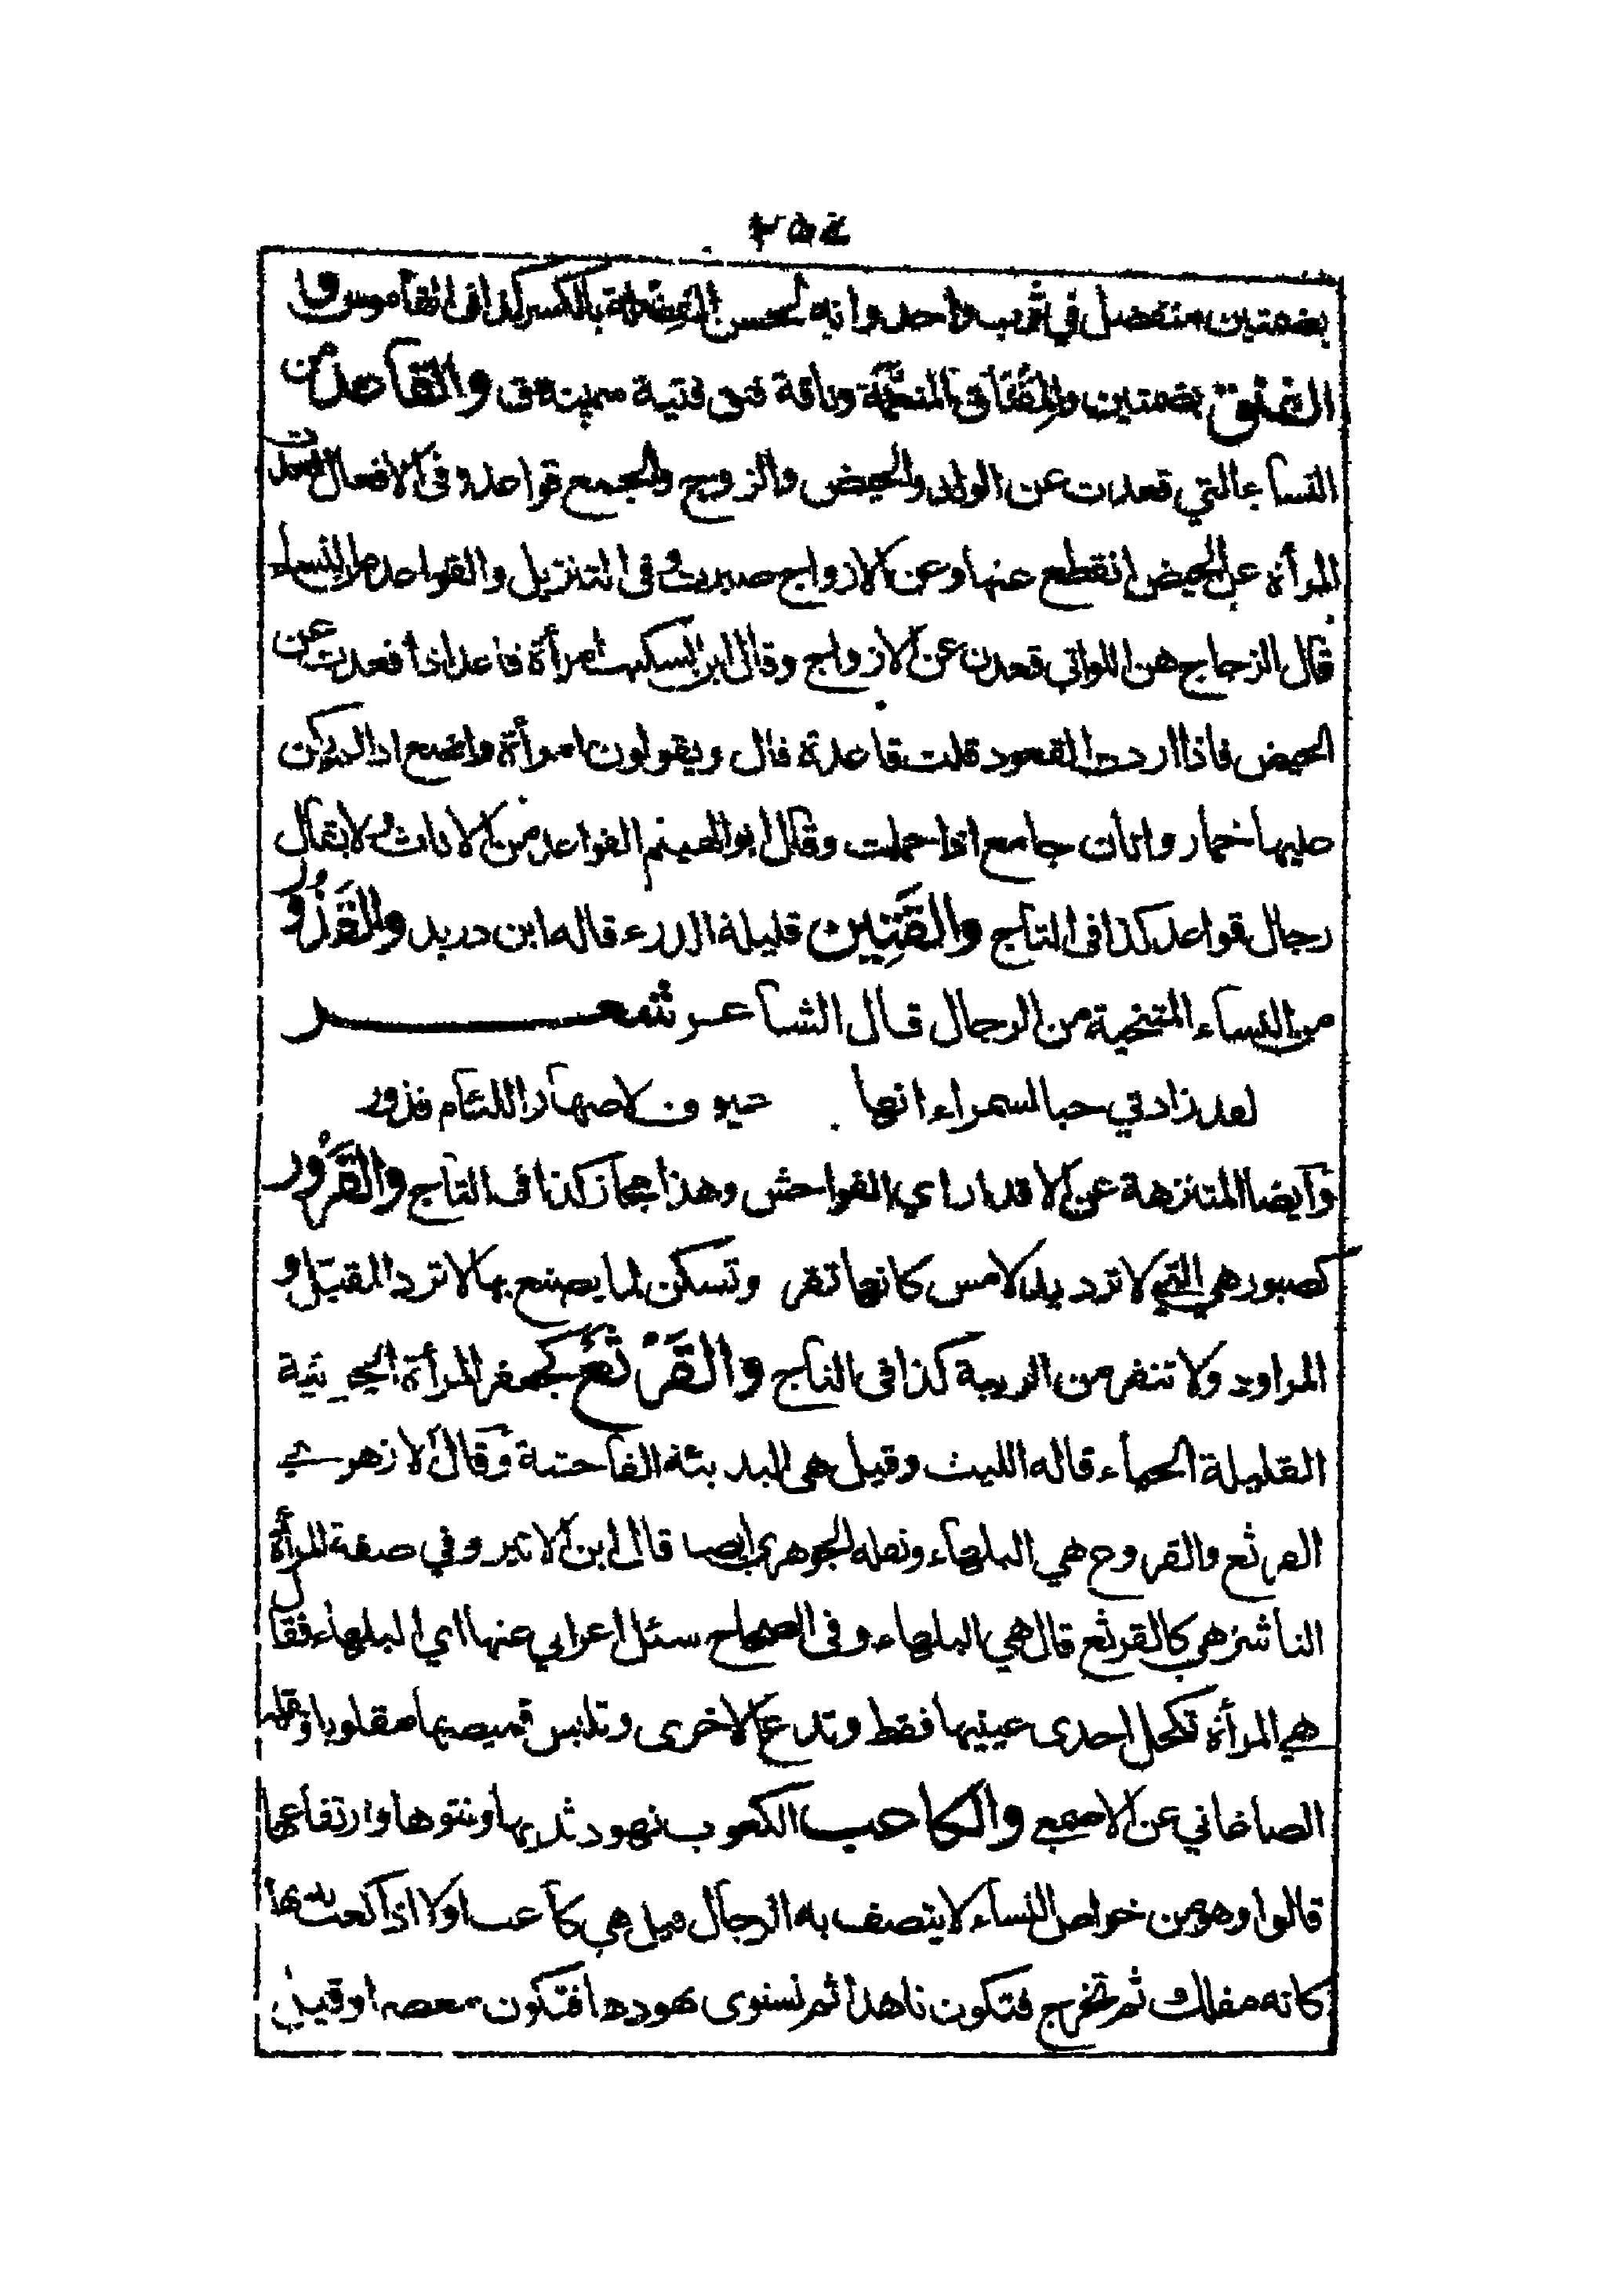 ٢٥٤
بضمتين متفضل في ثوب واحد وانه لحسن الفضلة بالكسر كذا في القاموس و
الفنق بضمتين والمفناق المنعمة وناقة فنق فتية سمينة والقاعد من
النساء التي قعدت عن الولد والحيض والزوج والجمع قواعد وفي الافعال قعدت
المرأة عن الحيض انقطع عنها وعن الازواج صبرت وفي التنزيل والقواعد من النساء
قال الزجاج هن اللواتي قعدن عن الازواج وقال ابن السكيت امرأة قاعد اذا قعدت عن
الحيض فاذا اردت القعود قلت قاعدة قال ويقولون امرأة واضع اذا لم يكن
عليها خمار واتان جامع اذا حملت وقال ابو الهيثم القواعد من الاناث ولا يقال
رجال قواعد كذا في التاج والقتين قليلة الدرء قاله ابن دريد والقذور
من النساء المتنحية من الرجال قال الشاعر شعر
لقد زادني حبا لسمراء انها عيوف لاصهار اللئام قذور
وايضا المتنزهة عن الاقذار اي الفواحش وهذا مجاز كذا في التاج والقرور
كصبور هي التي لا ترد يد لامس كانها تقر وتسكن لما يصنع بها لا ترد المقبل و
المراود ولا تنفر من الريبة كذا في التاج والقرثع كجعفر المرأة الجريئة
القليلة الحياء قاله الليث وقيل هي البذيئة الفاحشة وقال الازهري
القرثع والقردح هي البلهاء ونقله الجوهري ايضا قال ابن الاثير وفي صفة المرأة
الناشز هي كالقرثع قال هي البلهاء وفي الصحاح سئل اعرابي عنها اي البلهاء فقال
هي المرأة تكحل احدى عينيها فقط وتدع الاخرى وتلبس قميصها مقلوبا ونقله
الصاغاني عن الاصمعي والكاعب الكعوب نهود ثديها ونتوها وارتفاعها
قالوا وهو من خواص النساء لا يتصف به الرجال قيل هي كاعب اولا اذا كعب ثديها
كانه مفلك ثم تخرج فتكون ناهدا ثم تستوي نهودها فتكون معصرا وقيل